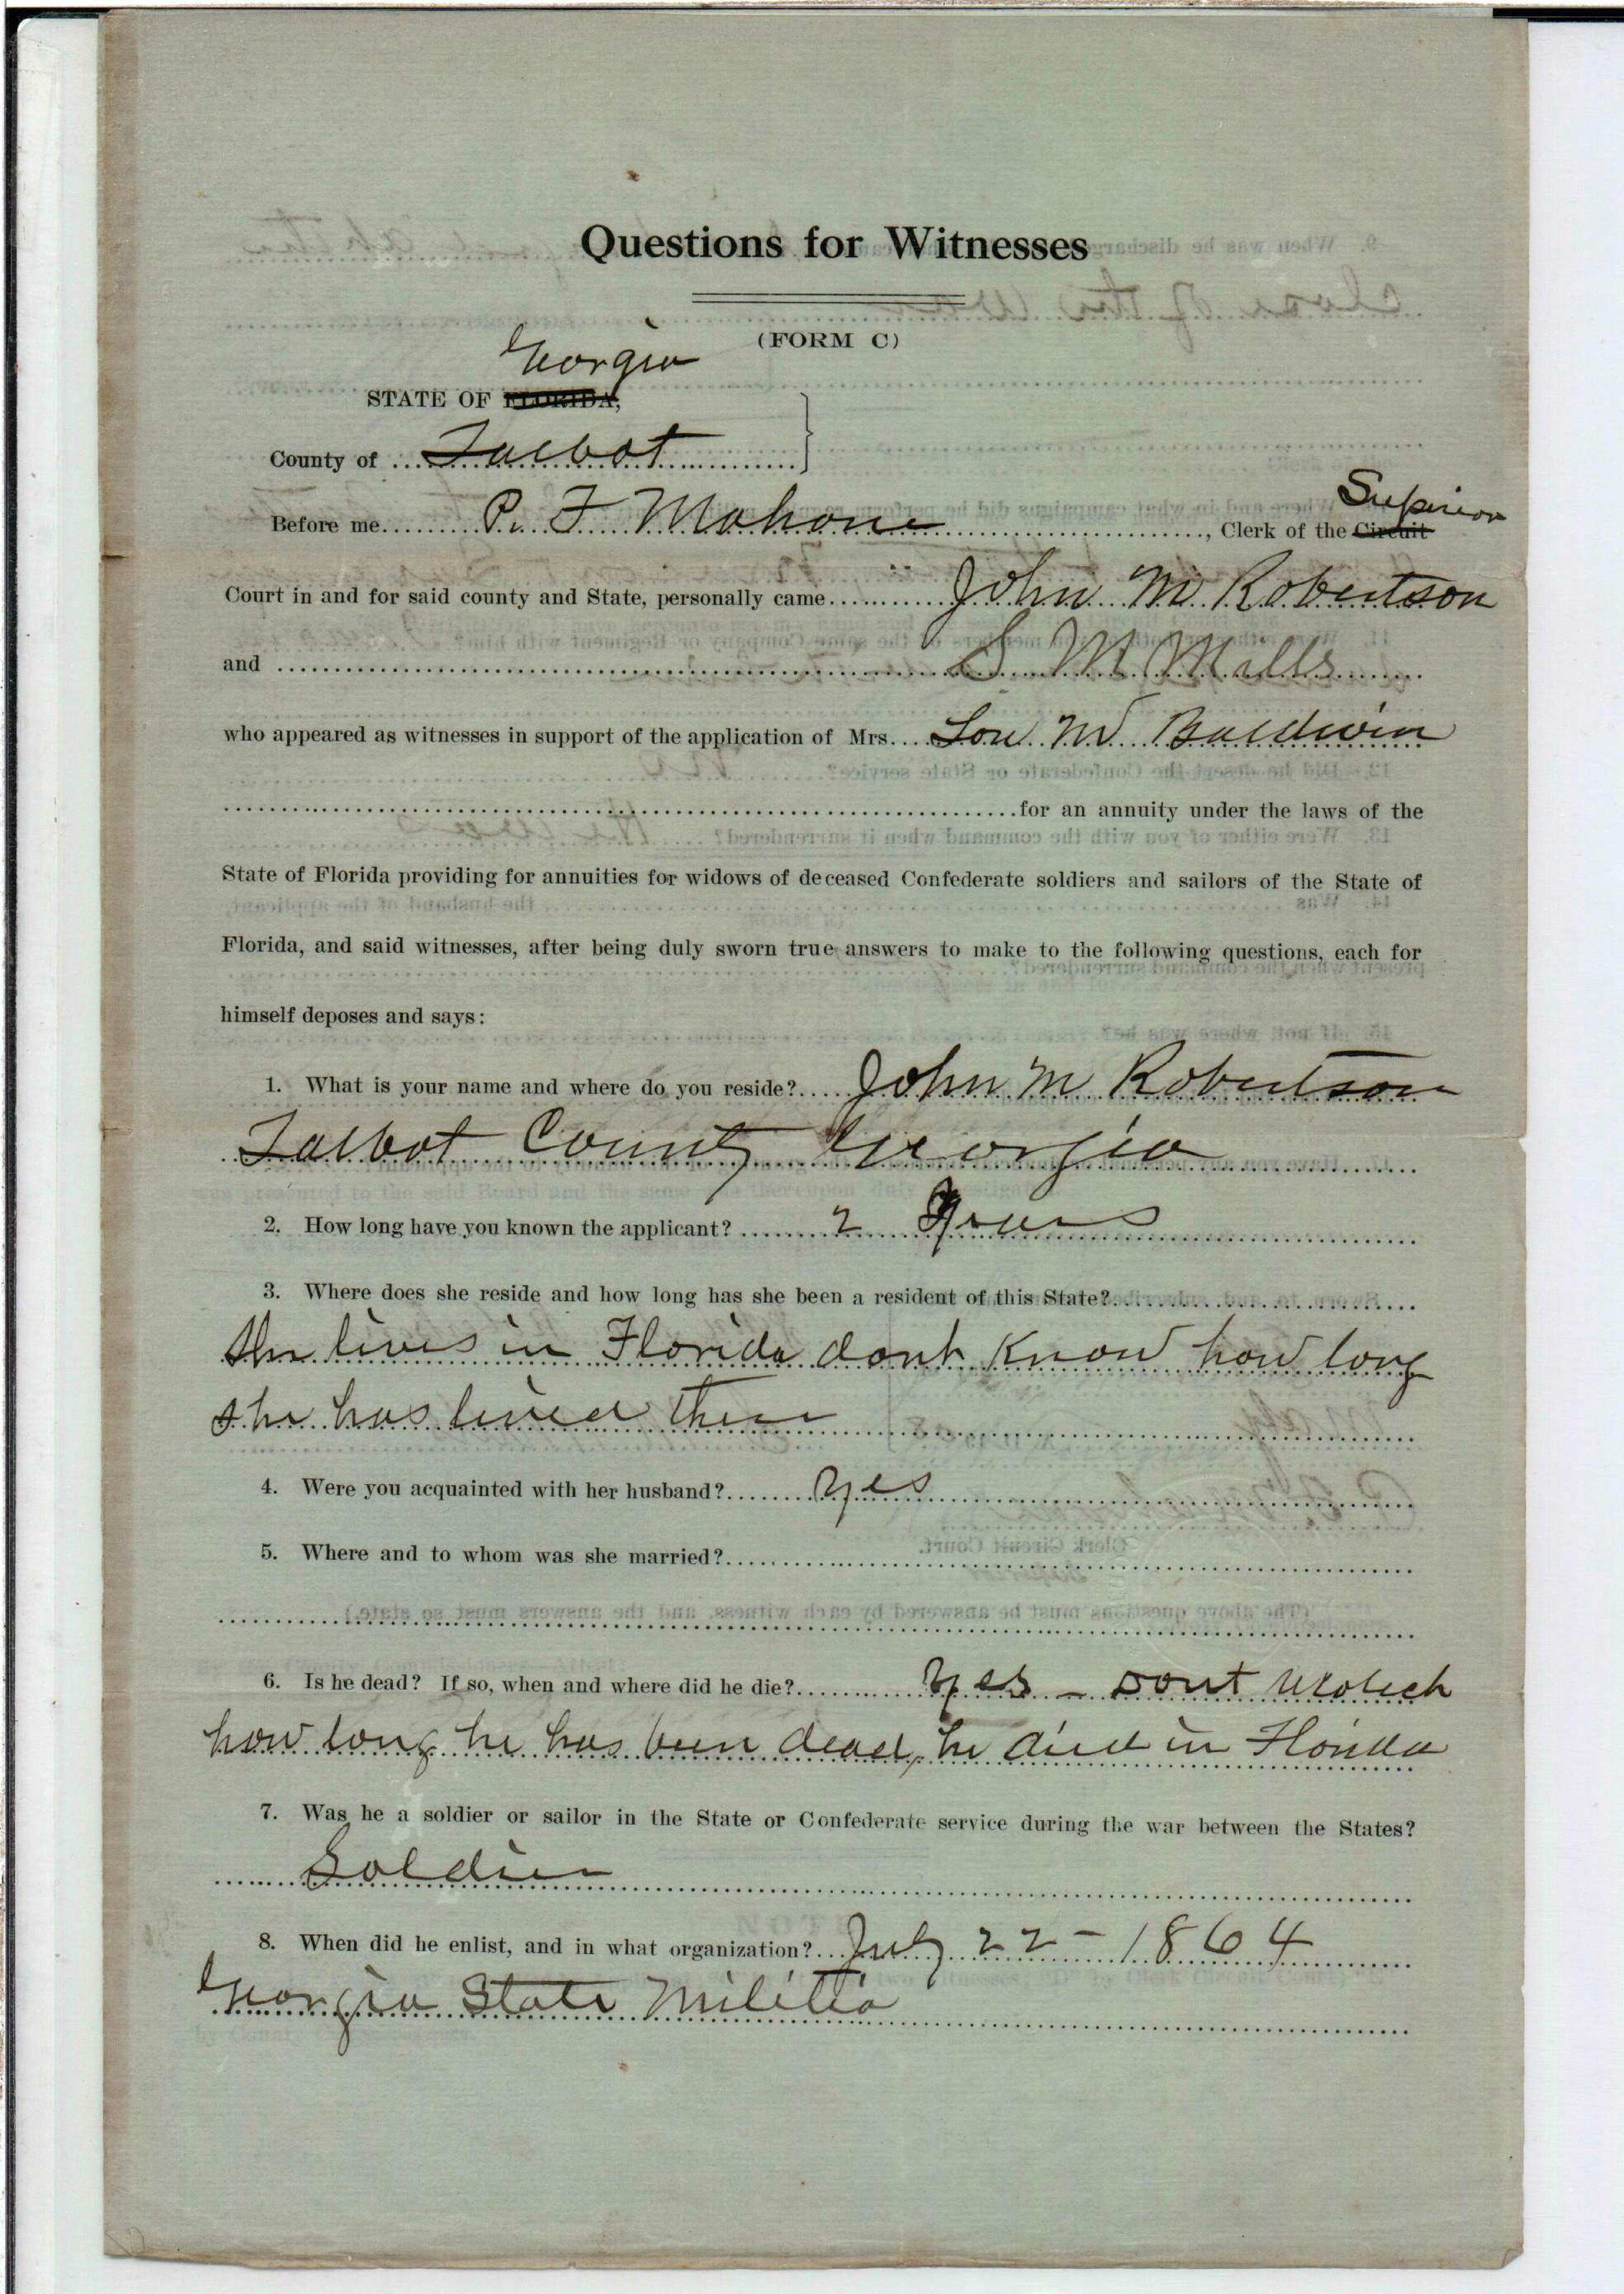 Questions for Witnesses
(FORM C)
Georgia
STATE OF FLORIDA,
County of Talbot
Superior
Before me P. F Mahone, Clerk of the Circuit
Court in and for said county and State, personally came John M Robertson
and S M Mills
who appeared as witnesses in support of the application of Mrs. Lou M Baldwin
for an annuity under the laws of the
State of Florida providing for annuities for widows of deceased Confederate soldiers and sailors of the State of
Florida, and said witnesses, after being duly sworn true answers to make to the following questions, each for
himself deposes and says:
1. What is your name and where do you reside? John M Robertson
Talbot County Georgia
2. How long have you known the applicant? 2 years
3. Where does she reside and how long has she been a resident of this State?
She lives in Florida dont know how long
she has lived there
4. Were you acquainted with her husband? Yes
5. Where and to whom was she married?
6. Is he dead? If so, when and where did he die? Yes - Dont
how long he has been dead, he died in Florida
7. Was he a soldier or sailor in the State or Confederate service during the war between the States?
Soldier
8. When did he enlist, and in what organization? July 22 - 1864
Georgia State Militia